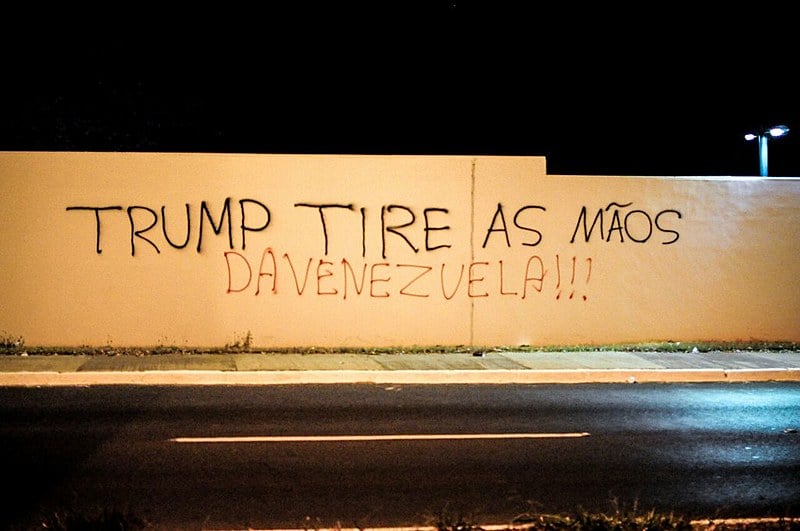 TRUMP TIRE AS MÃOS
DA VENEZUELA!!!